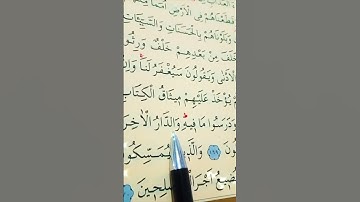 فِى الْاَرْضِ
وَبَلَوْنَاهُمْ بِالْحَسَنَاتِ وَالسَّيِّئَاتِ
مِنْ بَعْدِهِمْ خَلْفٌ
الْاَدْنٰى وَيَقُولُونَ سَيُغْفَرُ لَنَا
يُؤْخَذْ عَلَيْهِمْ مِيثَاقُ الْكِتَابِ
وَدَرَسُوا مَا فِيهِ وَالدَّارُ الْاٰخِرَ
ونَ ١٦٩ وَالَّذِينَ يُمَسِّكُو
نُضِيعُ اَجْرَ الْمُصْلِحِينَ